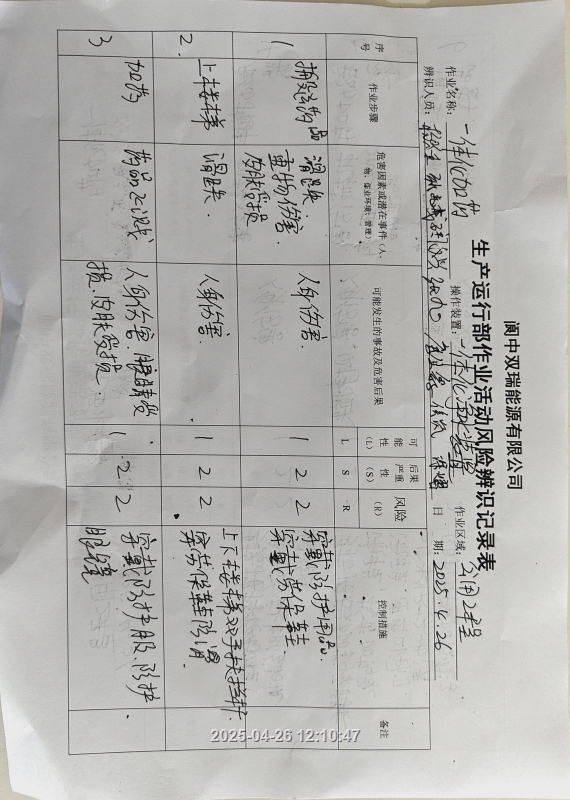 阆中双瑞能源有限公司
生产运行部作业活动风险辨识记录表
作业名称：一体化加药 操作装置：一体化净水装置 作业区域：公用工程
辨识人员： 日期：2025.4.26
序号 作业步骤 危害因素或潜在事件（人、物、作业环境、管理） 可能发生的事故及危害后果 可能性（L） 后果严重性（S） 风险（R） 控制措施 备注
L S R
1 搬运药品 滑跌.重物伤害.皮肤受损 人身伤害. 1 2 2 穿戴防护用品.穿戴劳保鞋
2. 上楼梯 滑跌. 人身伤害. 1 2 2 上下楼梯双手扶栏杆.穿劳保鞋防滑
3 加药 药品飞溅 人身伤害 眼睛受损.皮肤受损. 1 2 2 穿戴防护服.防护眼镜
2025-04-26 12:10:47